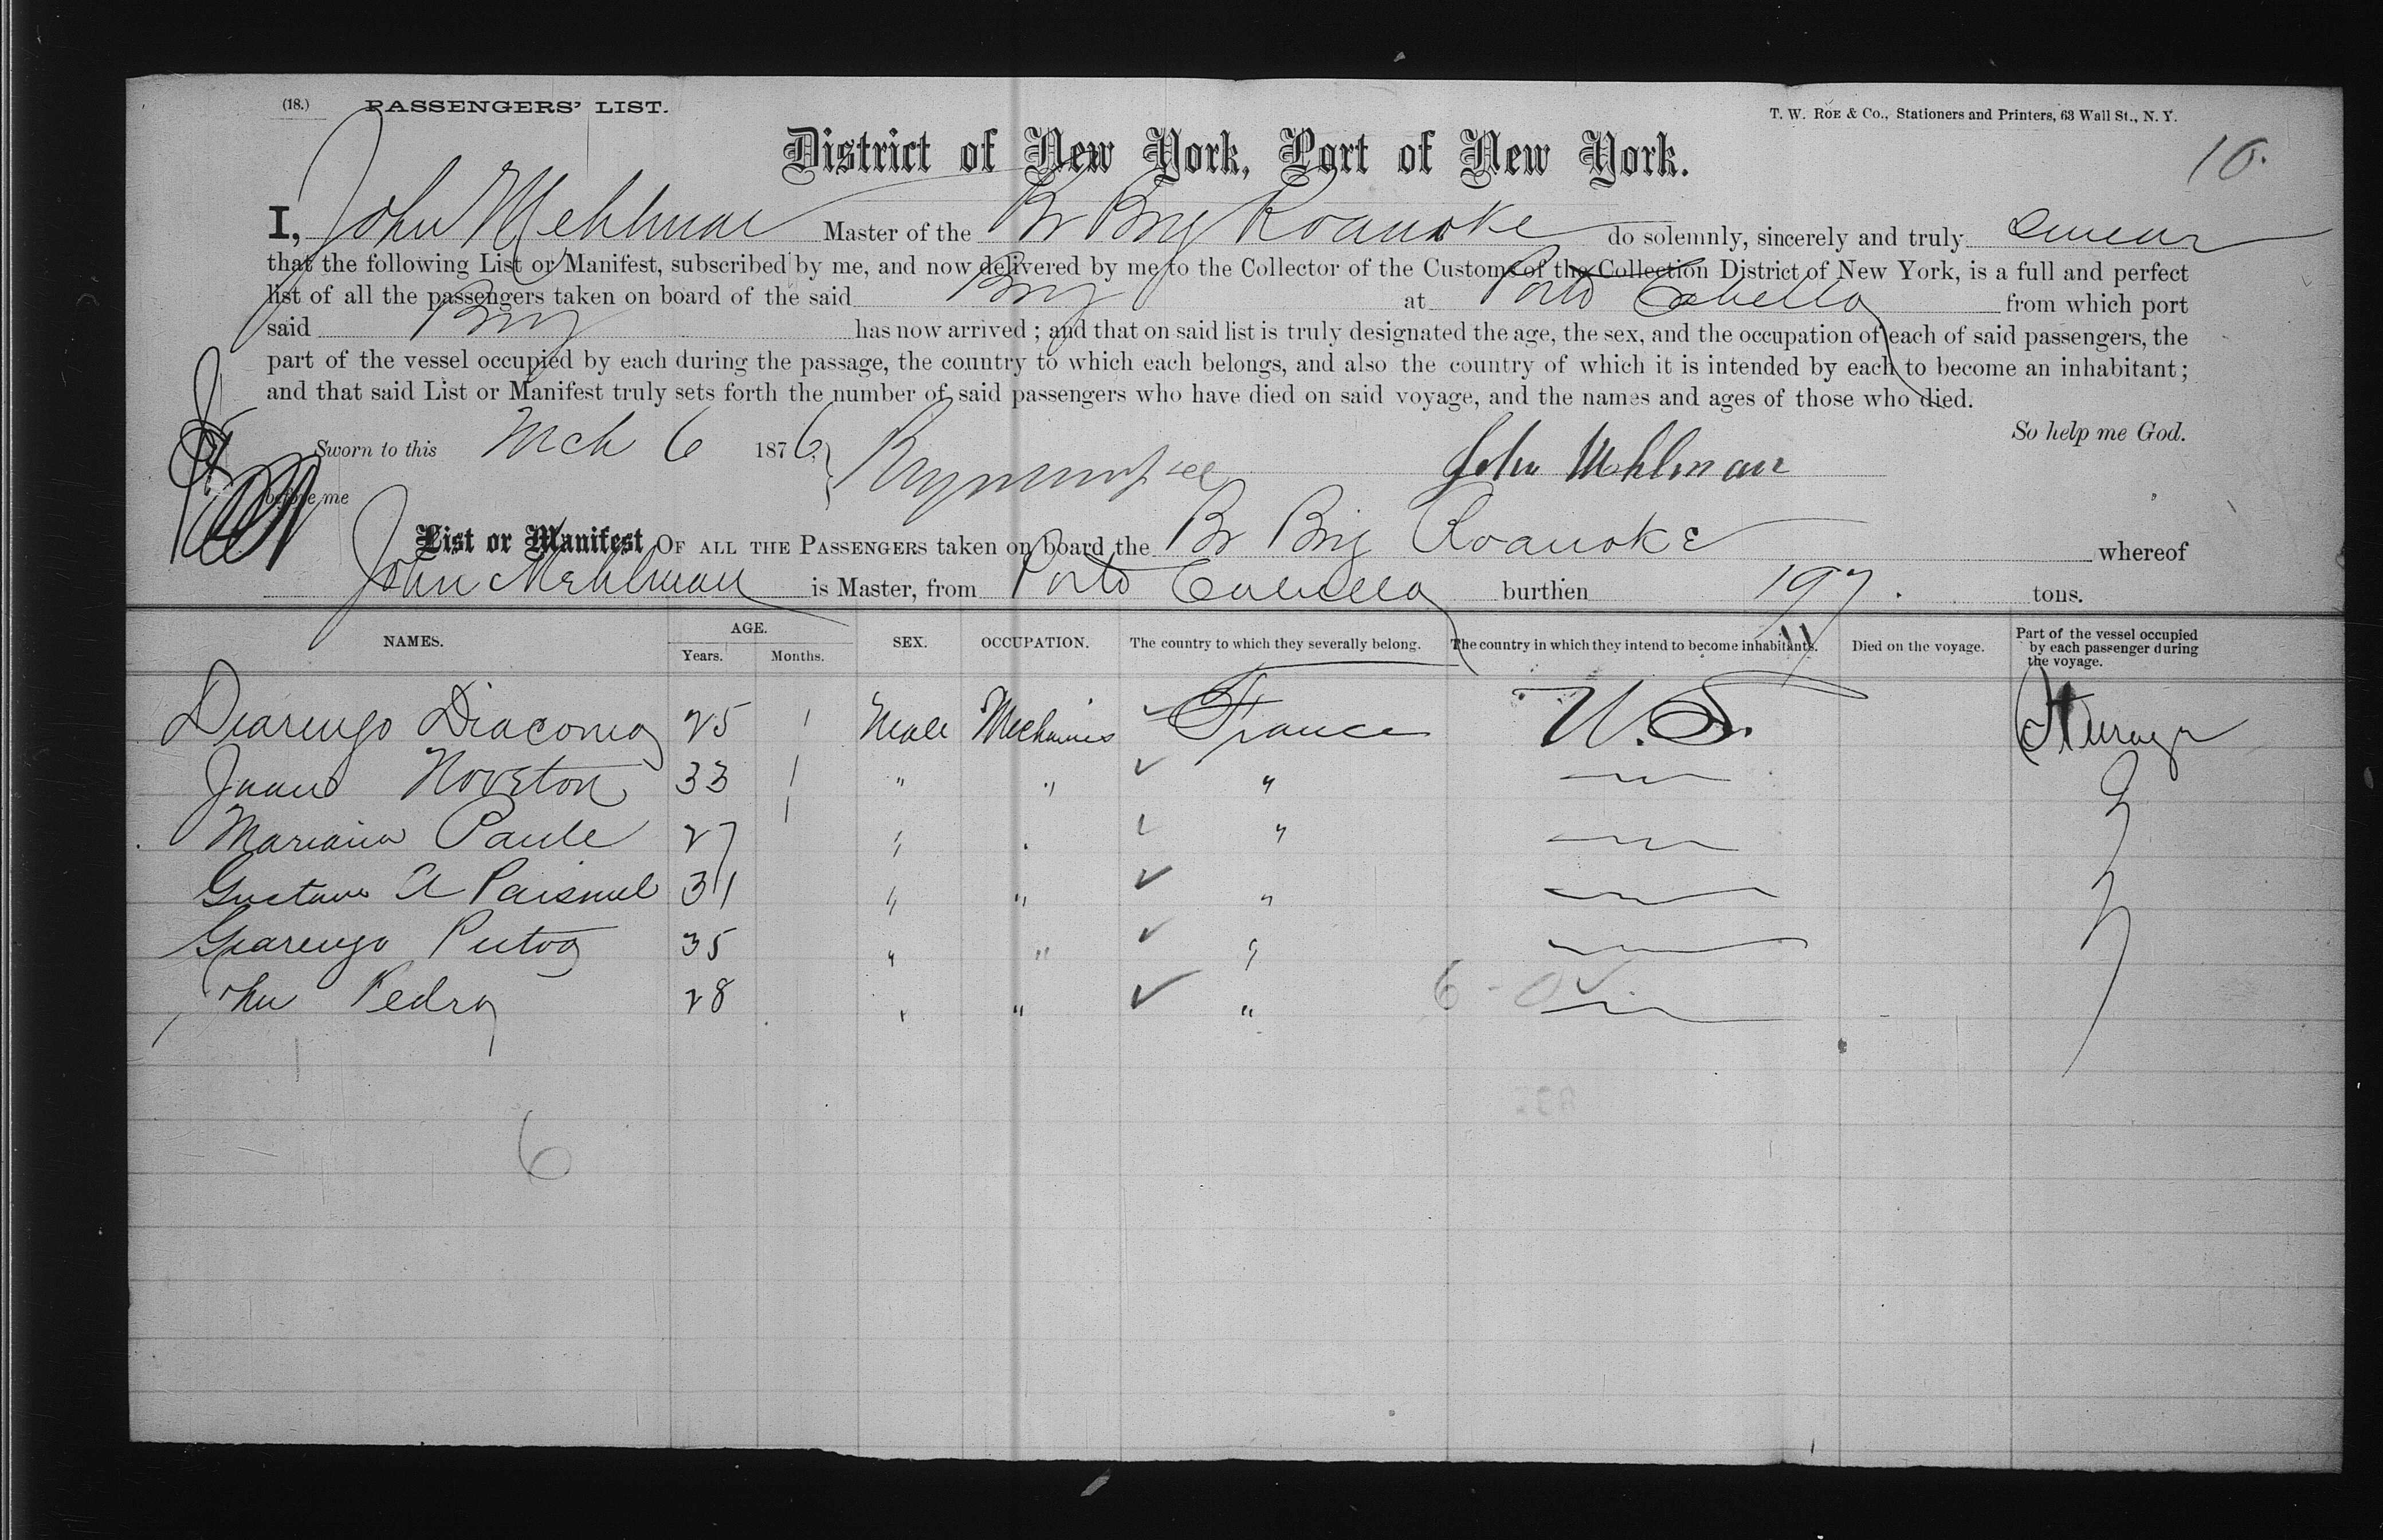 (18.) PASSENGERS' LIST.
T. W. ROE & Co., Stationers and Printers, 63 Wall St., N. Y.
10.
District of New York, Port of New York.
I, John Mehlman Master of the Br Brig Roanoke do solemnly, sincerely and truly swear
that the following List or Manifest, subscribed by me, and now delivered by me to the Collector of the Customs of the Collection District of New York, is a full and perfect
list of all the passengers taken on board of the said Brig at Porto Cabello from which port
said Brig has now arrived ; and that on said list is truly designated the age, the sex, and the occupation of each of said passengers, the
part of the vessel occupied by each during the passage, the country to which each belongs, and also the country of which it is intended by each to become an inhabitant ;
and that said List or Manifest truly sets forth the number of said passengers who have died on said voyage, and the names and ages of those who died.
So help me God.
Sworn to this Mch 6 1876 John Mehlman
before me
List or Manifest OF ALL THE PASSENGERS taken on board the Br Brig Roanoke whereof
John Mehlman is Master, from Porto Cabello burthen 197. tons.
NAMES. AGE. Years. Months. SEX. OCCUPATION. The country to which they severally belong. The country in which they intend to become inhabitants. Died on the voyage. Part of the vessel occupied by each passenger during the voyage.
Diarengo Diacomo 25 Male Mechanics France U.S. Steerage
Juan Noveton 33 " " "
Mariana Paule 27 " "
Gustave A 31 " " "
35 " " "
John Pedro 28 " " "
6